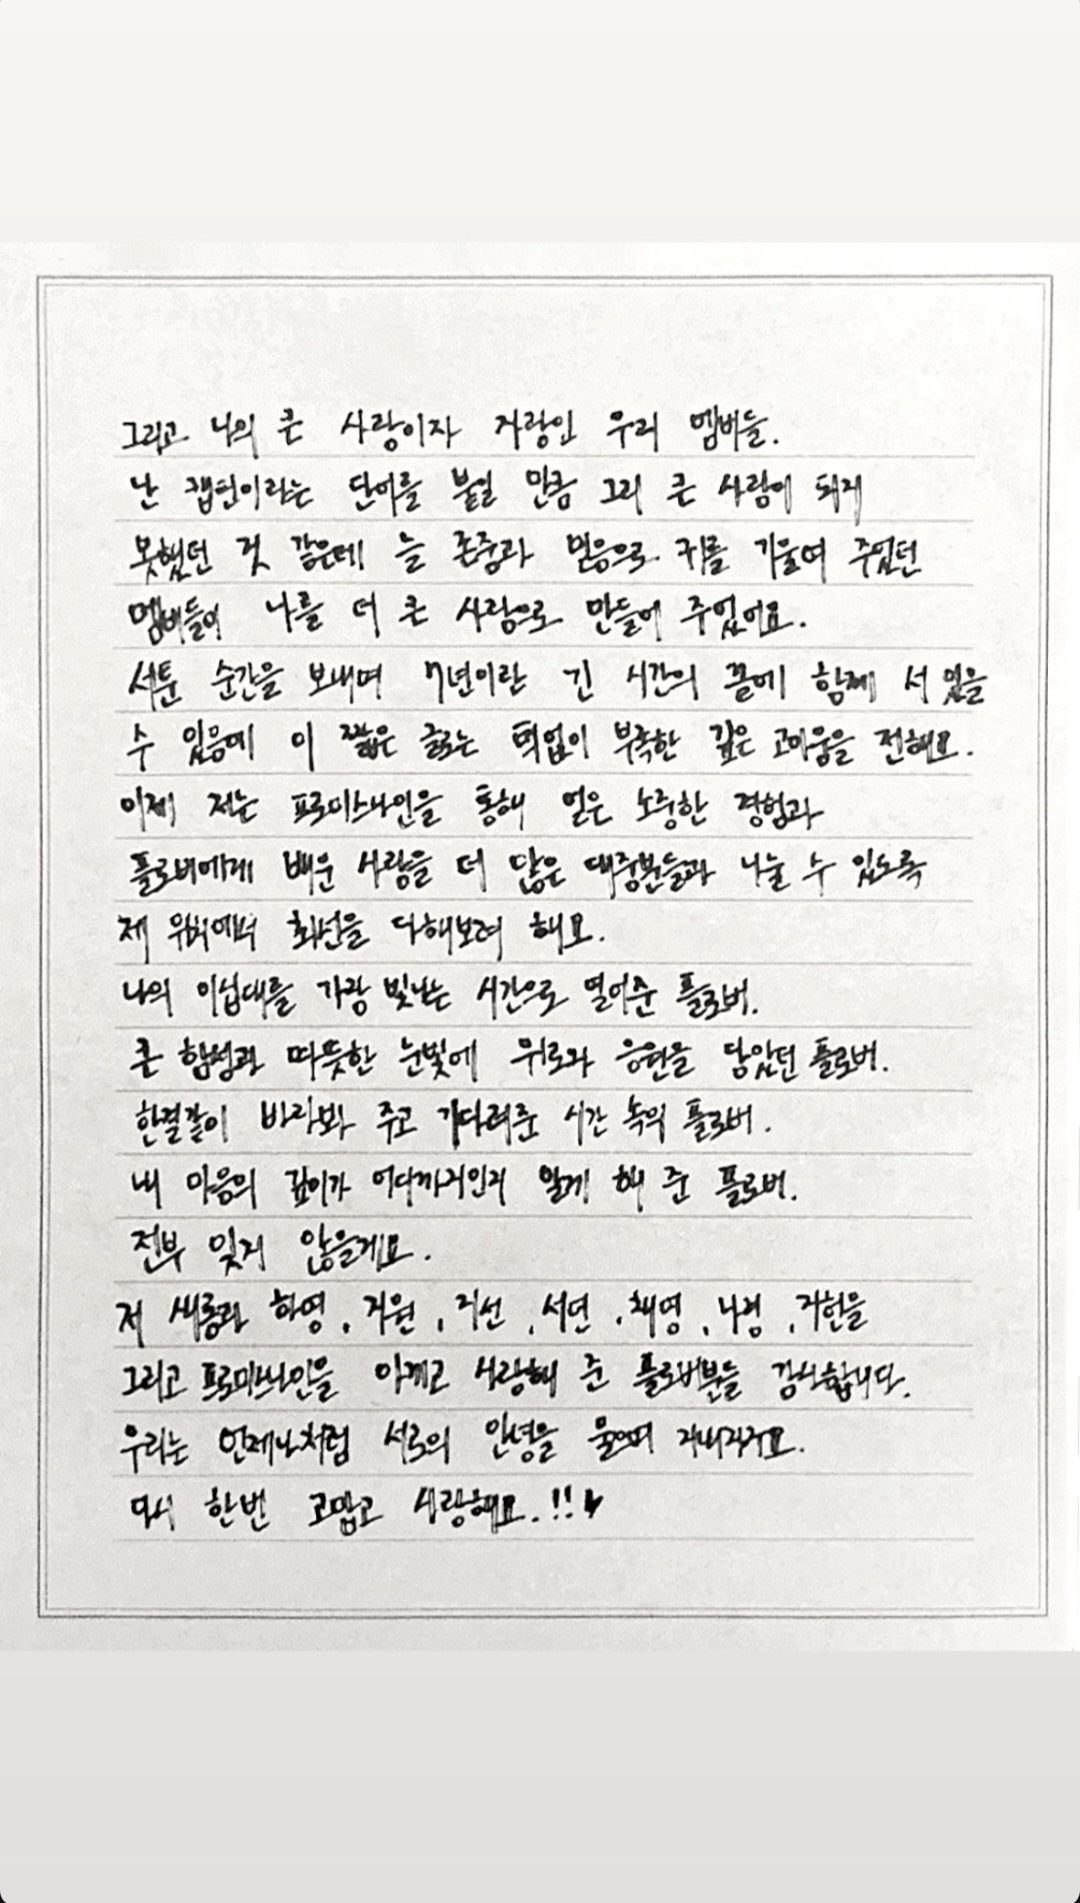 그리고 나의 큰 사랑이자 자랑인 우리 멤버들.
난 캡틴이라는 단어를 붙일 만큼 그리 큰 사람이 되지
못했던 것 같은데 늘 존중과 믿음으로 귀를 기울여 주었던
멤버들이 나를 더 큰 사람으로 만들어 주었어요.
서툰 순간을 보내며 7년이란 긴 시간의 끝에 함께 서 있을
수 있음에 이 짧은 글로는 턱없이 부족한 깊은 고마움을 전해요.
이제 저는 프로미스나인을 통해 얻은 소중한 경험과
플로버에게 배운 사랑을 더 많은 대중분들과 나눌 수 있도록
제 위치에서 최선을 다해보려 해요.
나의 이십대를 가장 빛나는 시간으로 열어준 플로버.
큰 함성과 따뜻한 눈빛에 위로와 응원을 담았던 플로버.
한결같이 바라봐 주고 기다려준 시간 속의 플로버.
내 마음의 깊이가 어디까지인지 알게 해 준 플로버.
전부 잊지 않을게요.
저 새롬과 하영, 지원, 지선, 서연, 채영, 나경, 지헌을
그리고 프로미스나인을 아끼고 사랑해 준 플로버분들 감사합니다.
우리는 언제나처럼 서로의 안녕을 물으며 지내자구요.
다시 한번 고맙고 사랑해요.!!♥